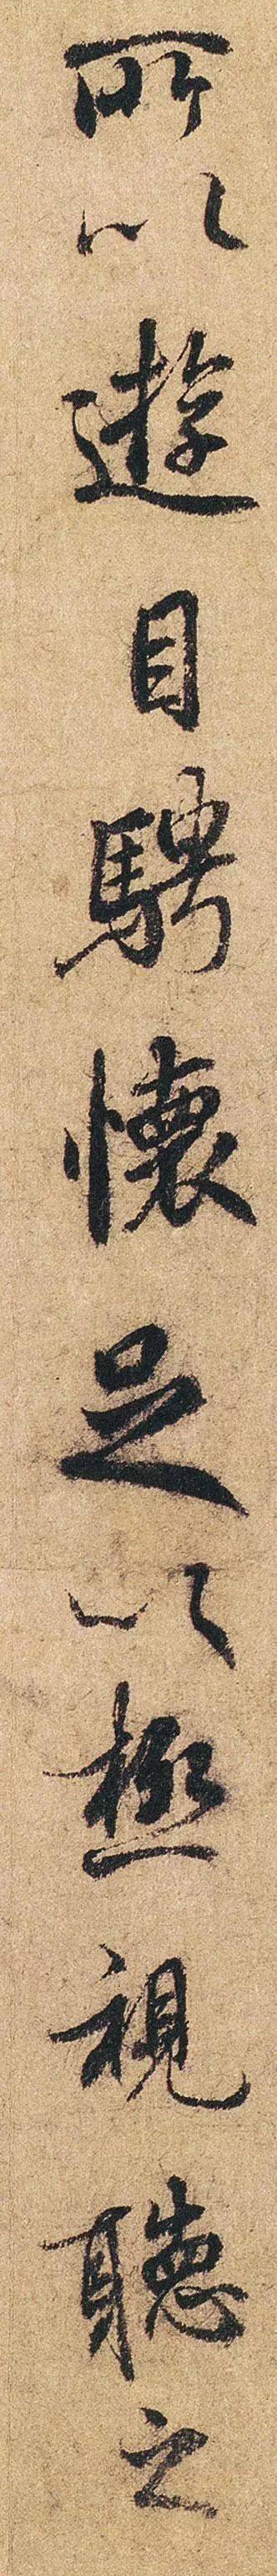 所以遊目騁懷足以極視聽之